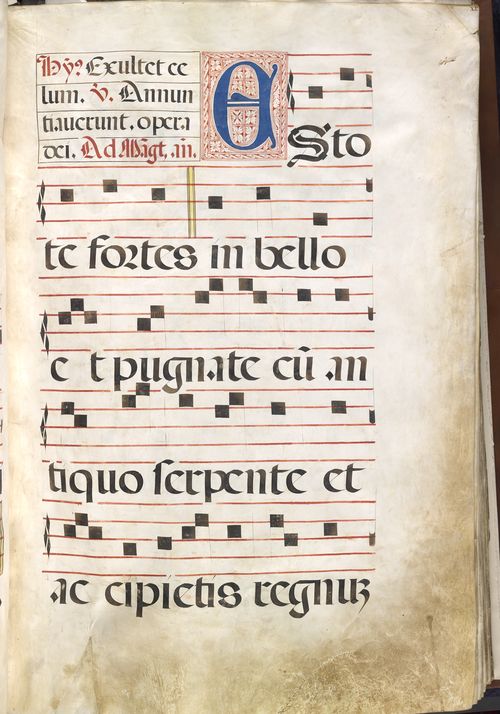 Hỹ. Exultet ce
lum. V̄. Annun
tiauerunt. opera
dei. Ad Māgt. añ.
ESto
te fortes in bello
e t pugnate cū an
tiquo serpente et
ac cipietis regnuʒ